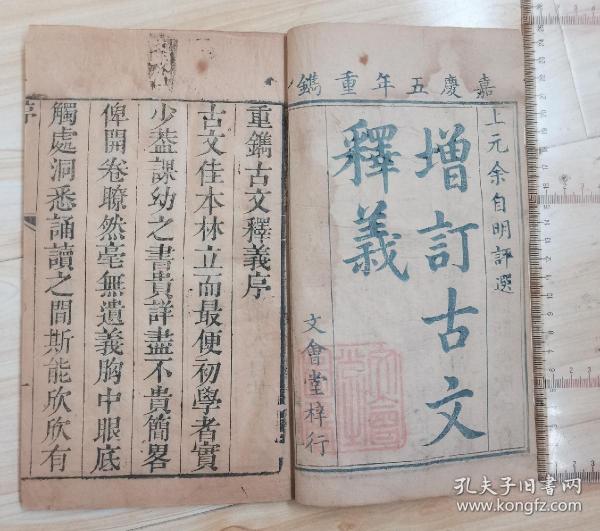 嘉慶五年重鐫
上元余自明評選
增訂古文
釋義
文會堂梓行
重鐫古文釋義序
古文佳本林立而最便初學者實
少葢課幼之書貴詳盡不貴簡畧
俾開卷瞭然毫無遺義胸中眼底
觸處洞悉誦讀之間斯能欣欣有
序
一
孔夫子旧书网
www.kongfz.com